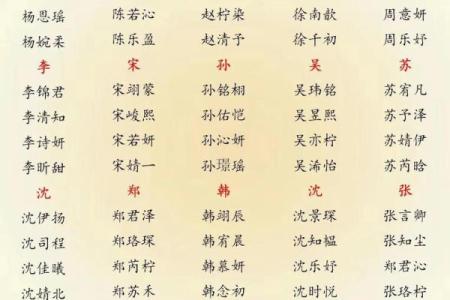 杨恩瑶 陈若沁 赵柠染 徐南歆 周意妍
杨婉柔 陈乐盈 赵清予 徐千初 周乐妤
李 宋 孙 吴 苏
李锦君 宋翊蒙 孙铭栩 吴玮铭 苏宥凡
李清知 宋峻熙 孙佑恺 吴昱熙 苏予泽
李诗妍 宋若妍 孙沁妍 吴亦柠 苏婧伊
李昕甜 宋婧一 孙璟瑶 吴浠怡 苏芮晗
沈 郑 韩 沈 张
沈伊扬 郑君泽 韩翊辰 沈景琛 张言卿
沈司程 郑珞琛 韩宥晨 沈知韫 张知尘
沈佳曦 郑芮柠 韩慕妍 沈乐妤 郑君沁
沈婧北 郑苏禾 韩念初 沈时悦 张珞柠